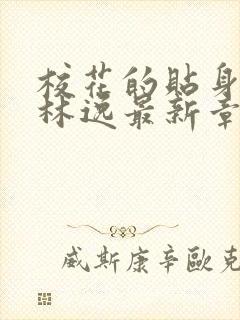 校花的貼身
林逸最新章
威斯康辛歐克